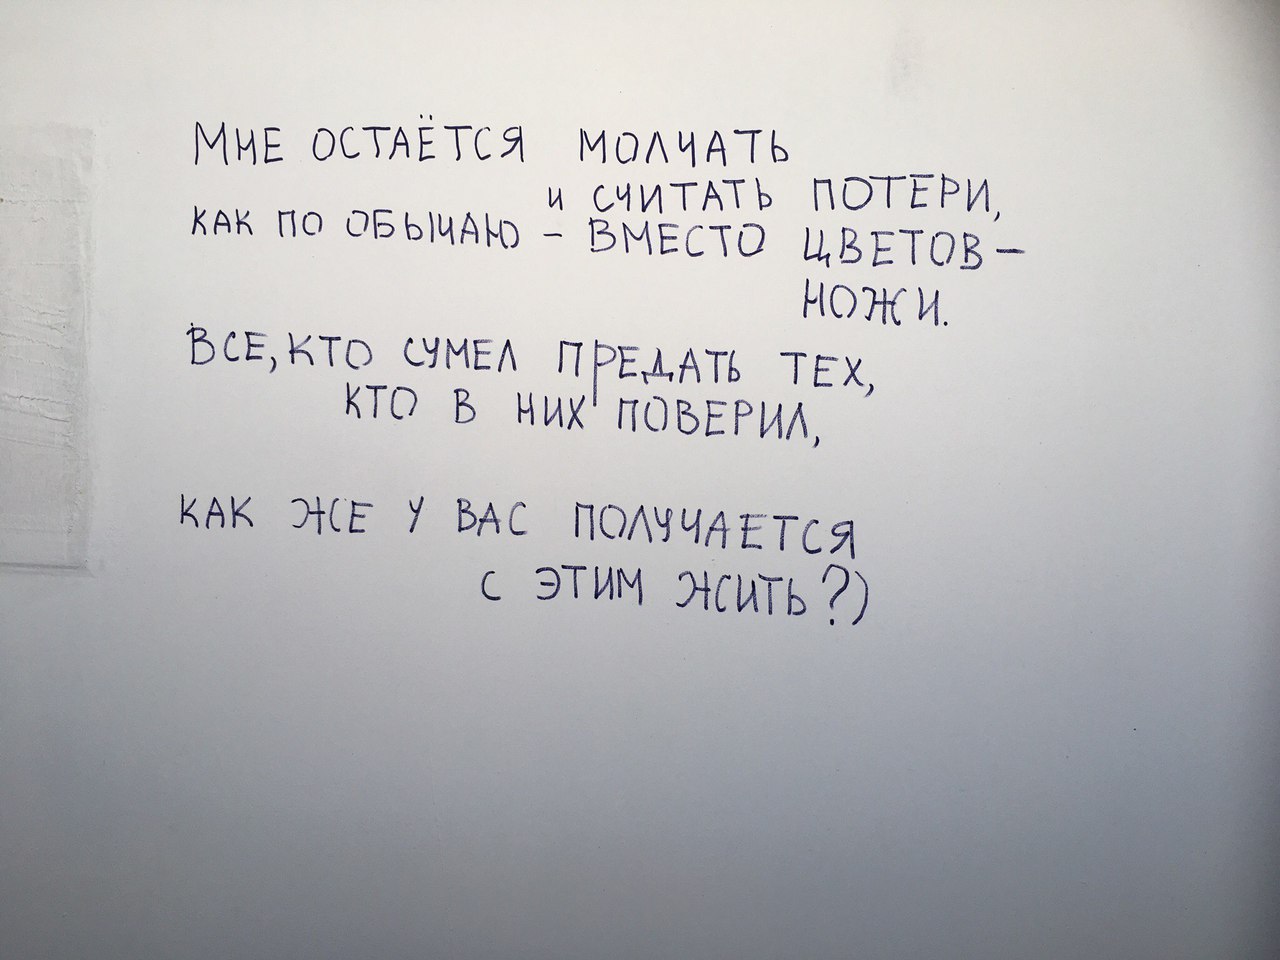 Мне остаётся молчать
и считать потери,
как по обычаю – вместо цветов –
ножи.
Все, кто сумел предать тех,
кто в них поверил,
как же у вас получается
с этим жить?)